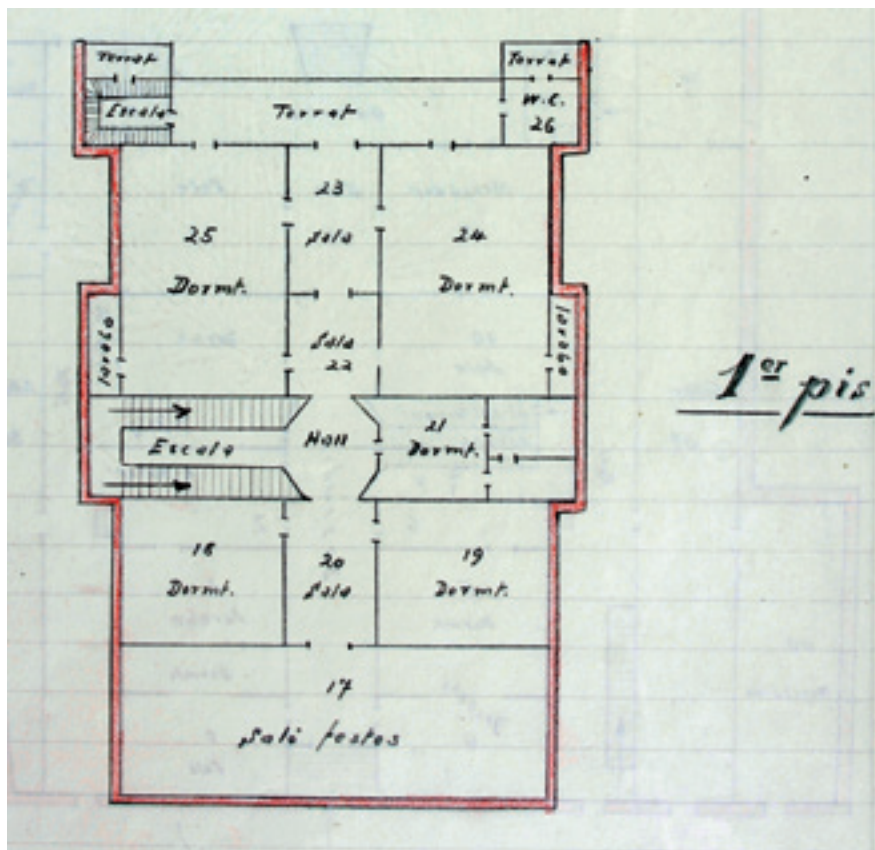 Terrat
Terrat
Escala
Terrat
W.C.
26
23
Sala
25
Dormt.
24
Dormt.
lavabo
Sala
22
lavabo
1er pis
Escala
Hall
21
Dormt.
18
Dormt.
20
Sala
19
Dormt.
17
Saló festes